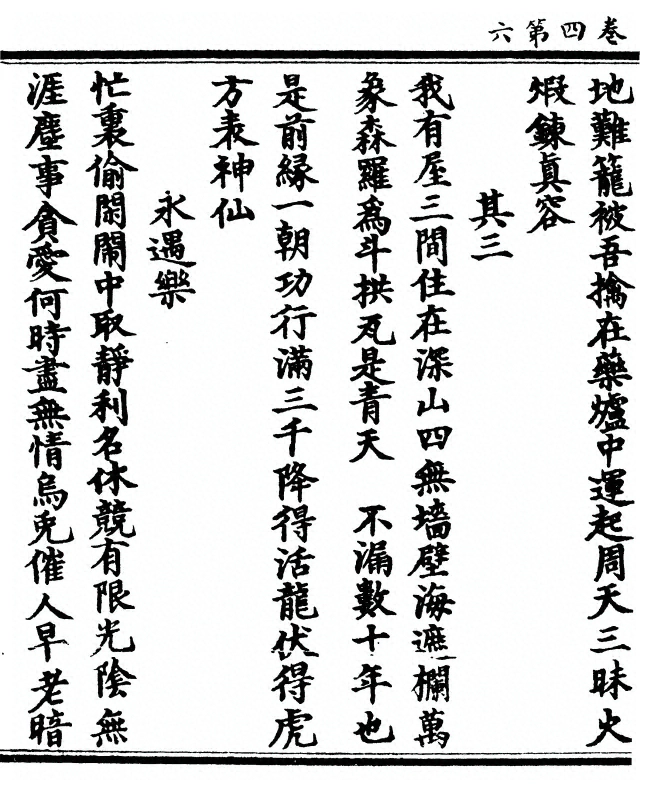 卷四第六
地難籠被吾擒在藥爐中運起周天三昧火
煅鍊真容
其三
我有屋三間住在深山四無墻壁海遮欄萬
象森羅爲斗拱瓦是青天　不漏數十年也
是前緣一朝功行滿三千降得活龍伏得虎
方表神仙
永遇樂
忙裏偷閑鬧中取靜利名休競有限光陰無
涯塵事貪愛何時盡無情烏兎催人早老暗